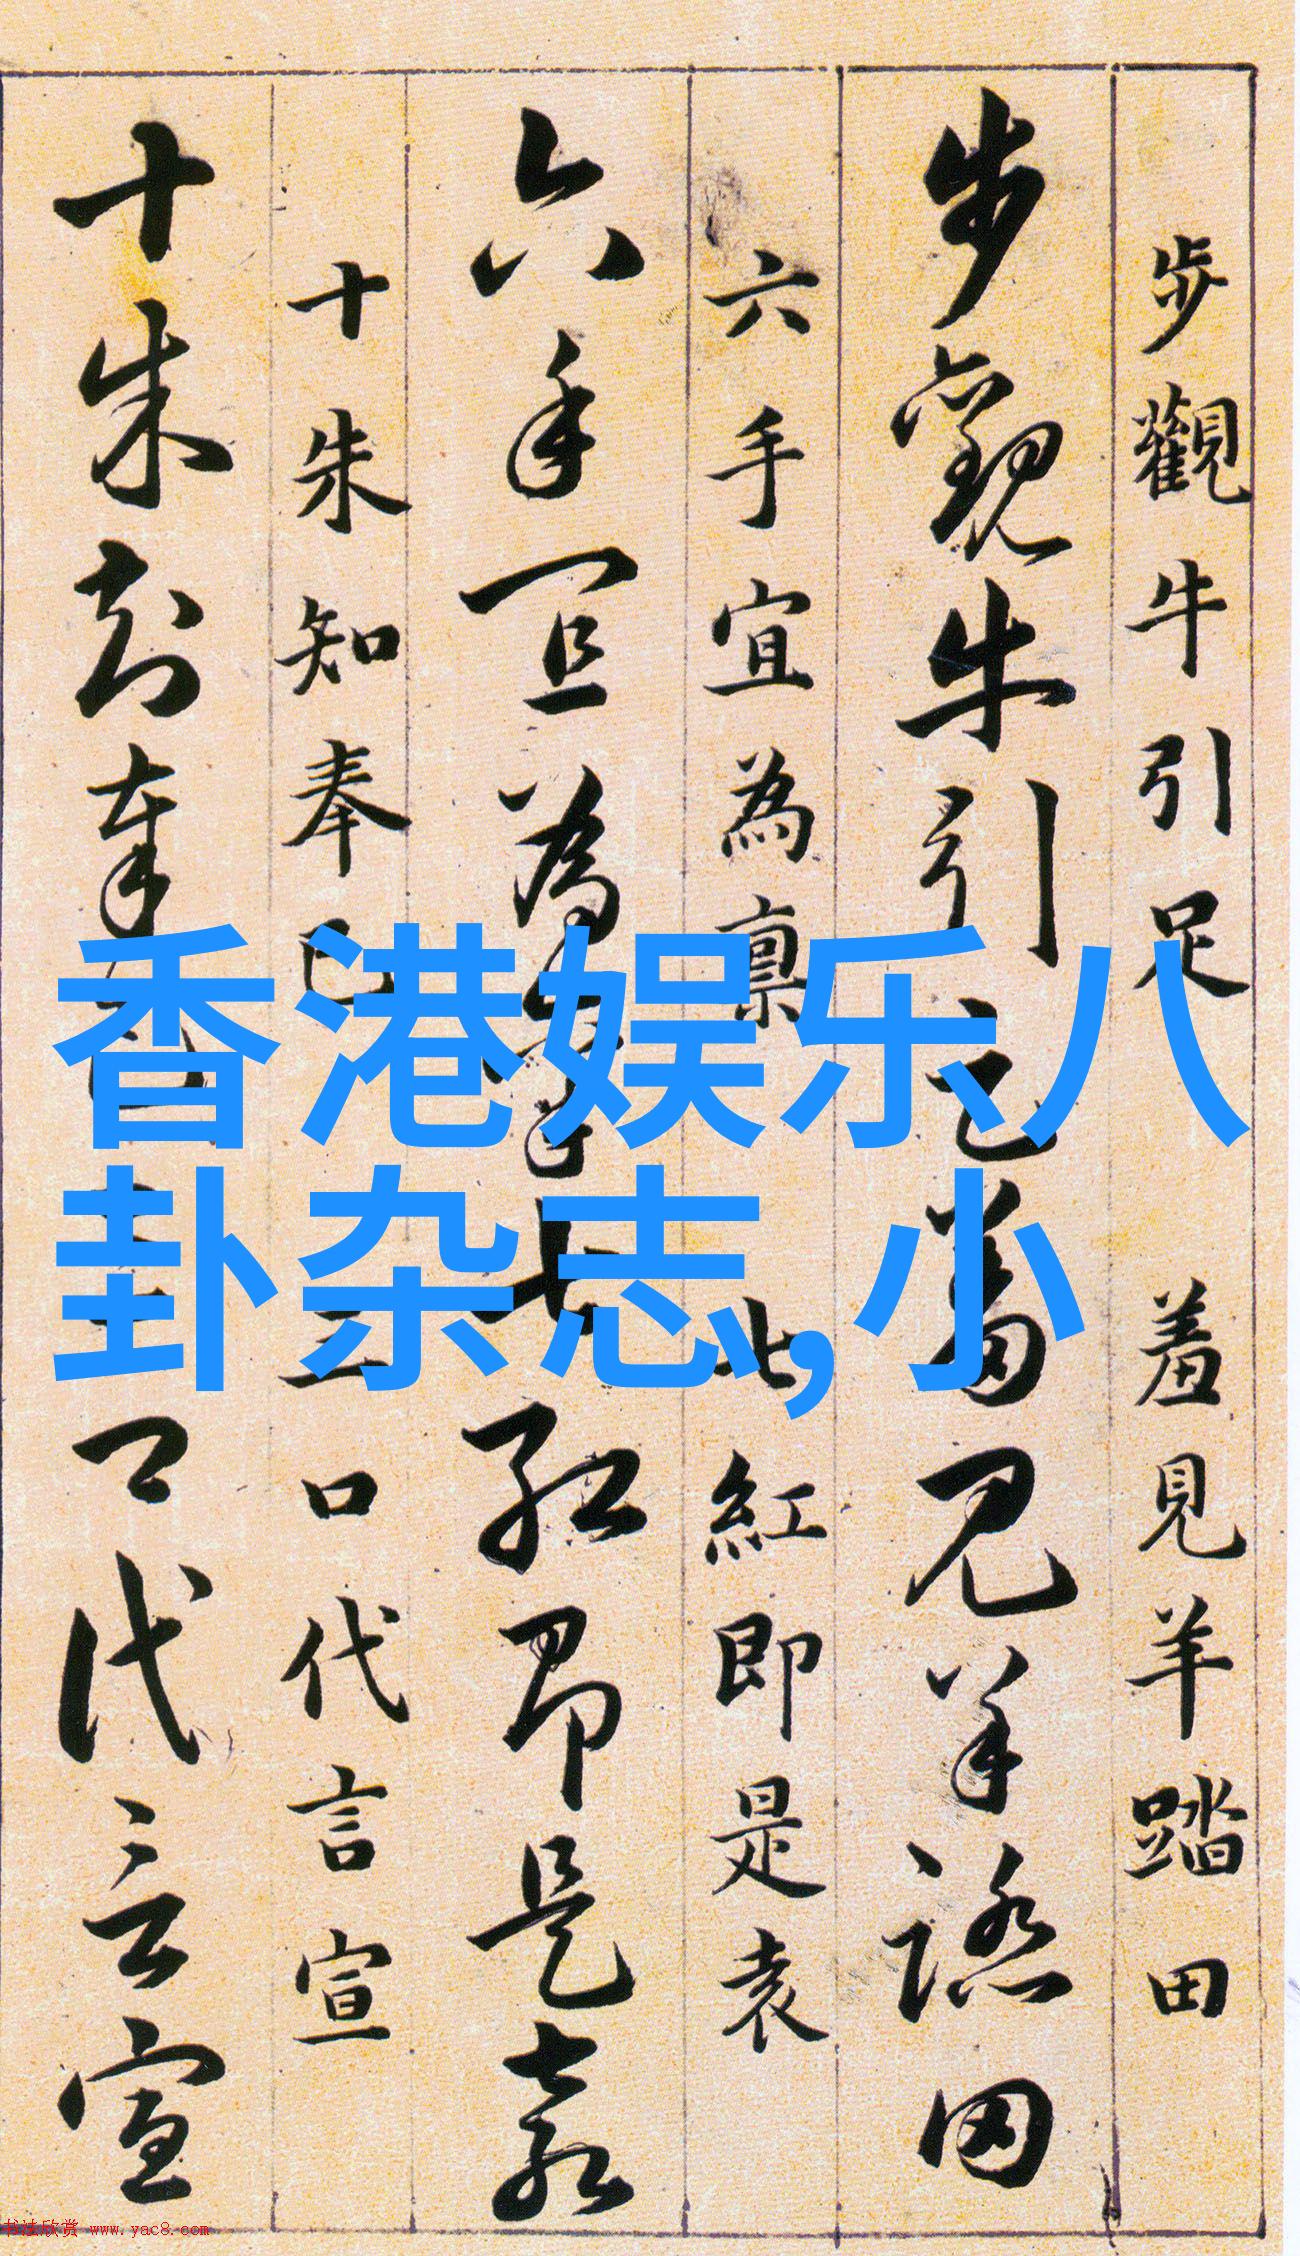 步觀牛引足 羞見羊踏田
步觀牛引足羞見羊踏田
六手宜為稟 七紅即是袁
六手宜為稟七紅即是袁
十朱知奉已 三口代言宣
十朱知奉已三口代言宣
香港娱乐八
卦杂志,小
书法欣赏 www.yac8.com